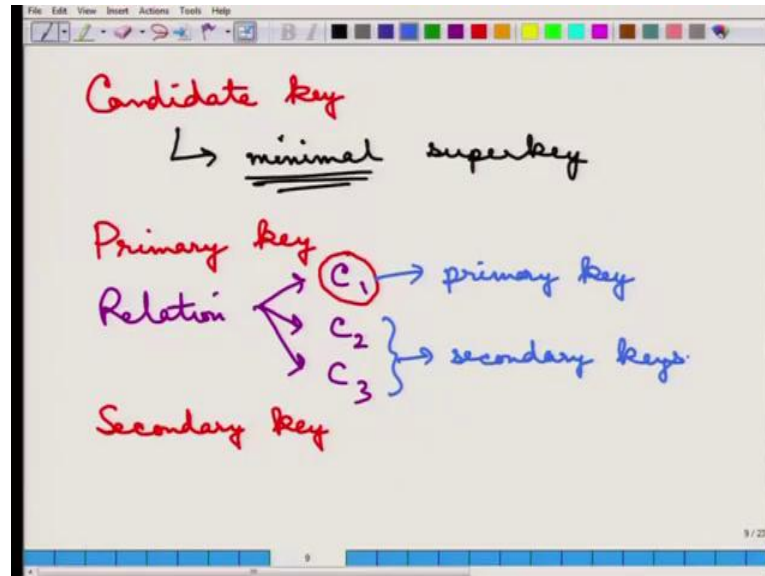 File Edit View Insert Actions Tools Help
Candidate key
↳ minimal superkey
Primary key
Relation → C₁ → primary key
C₂
C₃ } → secondary keys.
Secondary key
9